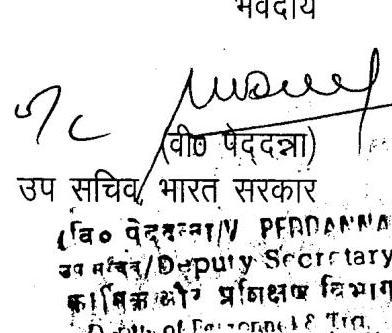 भवदीय
(वी० पेद्दन्ना)
उप सचिव, भारत सरकार
(वि० पेद्दन्ना/V PEDDANNA
उप सचिव/Deputy Secretary
कार्मिक और प्रशिक्षण विभाग
Deptt. of Personnel & Trg.